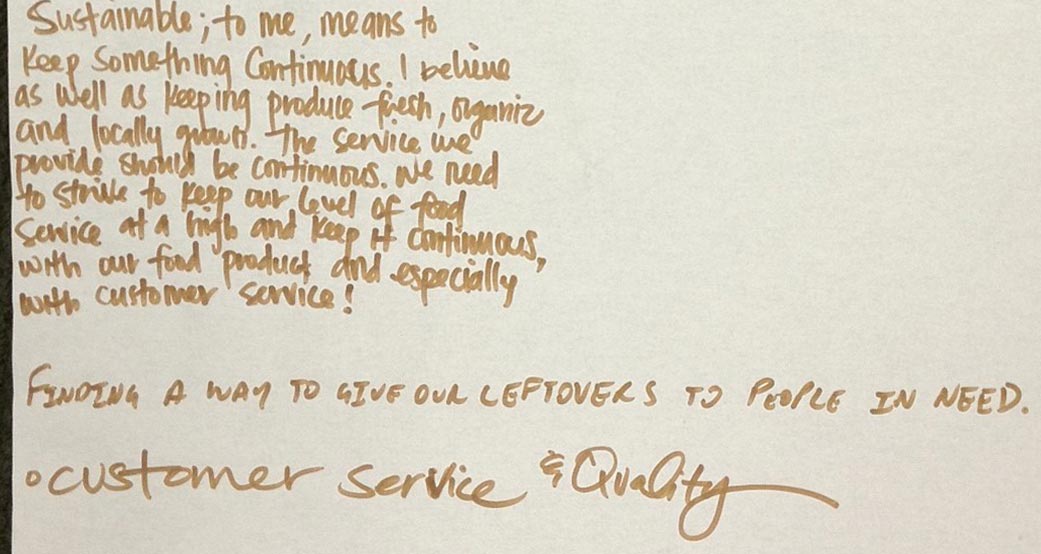 Sustainable; to me, means to
Keep Something Continuous. I believe
as well as keeping produce fresh, organic
and locally grown. The service we
provide should be continuous. We need
to strive to keep our level of food
service at a high and keep it continuous,
with our food product and especially
with customer service!
FINDING A WAY TO GIVE OUR LEFTOVERS TO PEOPLE IN NEED.
o customer service & Quality